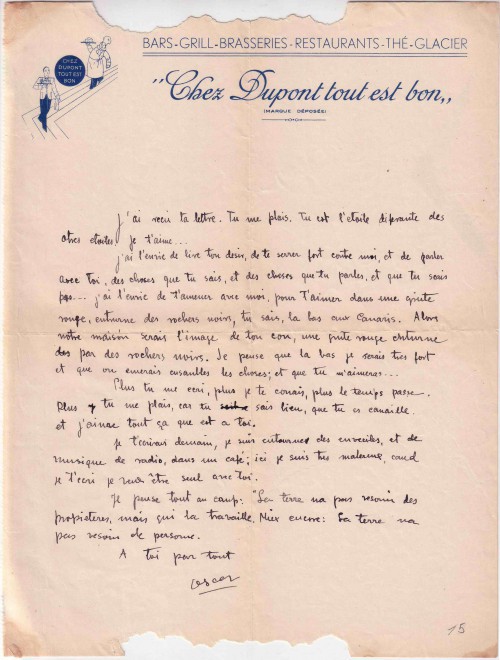 BARS-GRILL-BRASSERIES-RESTAURANTS-THÉ-GLACIER
CHEZ
DUPONT
TOUT EST
BON
"Chez Dupont tout est bon"
(MARQUE DÉPOSÉE)
J'ai recu ta lettre. Tu me plais. Tu est l'etoile diferante des
otres etoiles. Je t'aime...
j'ai l'envie de live ton desir, de te serrer fort contre moi, et de parler
avec toi, des choses que tu sais, et des choses que tu parles, et que tu sais
pas... j'ai l'envie de t'amener avec moi, pour t'aimer dans une grute
rouge, enturne des rochers noirs, tu sais, la bas aux Canaris. Alors
notre maison serais l'image de ton con, une grute rouge enturne
par des rochers noirs. Je pense que la bas je serais tres fort
et que on emerais ensanbles les choses; et que tu m'aimeras...
Plus tu me ecri, plus je te conais, plus le temps passe.
Plus tu me plais, car tu sais bien, que tu es canaille.
et j'aime tout ça que est a toi.
je t'ecrirais demain, je suis entourne des enveciles, et de
musique de radio, dans un café; ici je suis tres malerux, cand
je t'ecri je veux être seul avec toi.
Je pense tout au camp: "La terra na pas besoin des
propieteres, mais qui la travaille. Mieux encore: La terra na
pas besoin de persone.
A toi par tout
Oscar
15